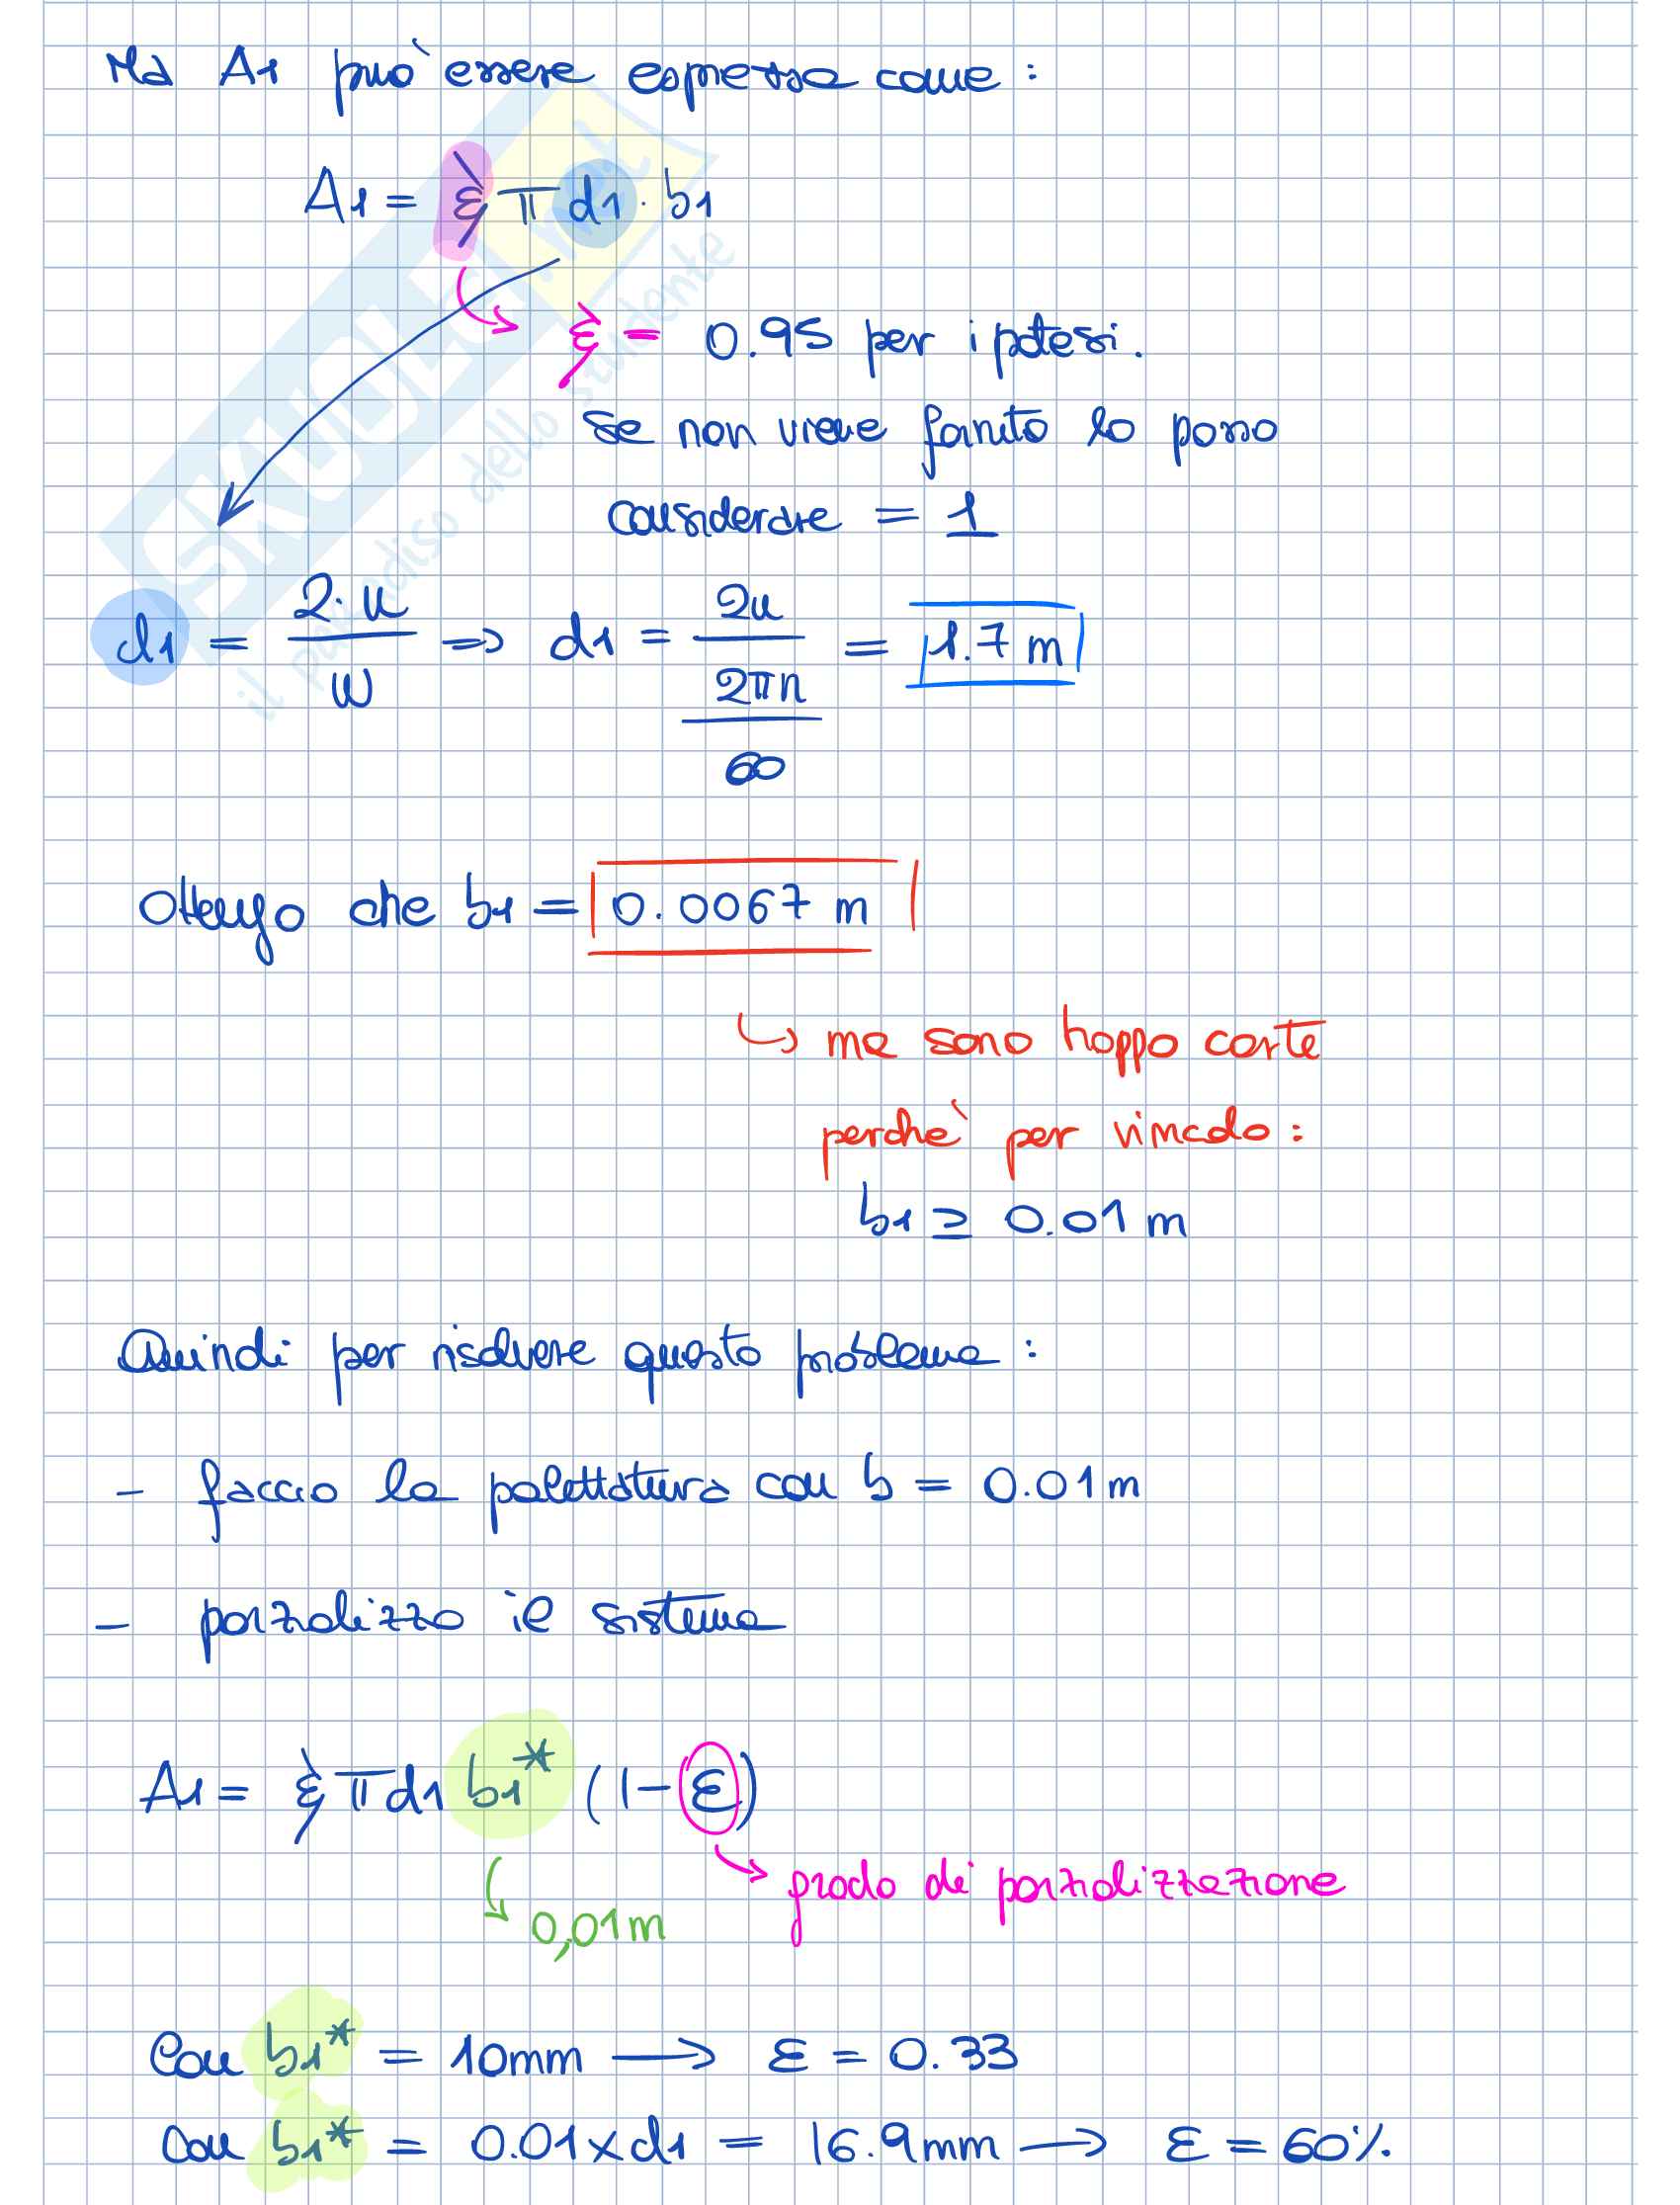 Ma A1 può essere espressa come:
A1 = ξ π d1 · b1
ξ = 0.95 per ipotesi.
se non viene fornito lo posso
considerare = 1
d1 = 2·u / ω => d1 = 2u / (2πn / 60) = 1.7 m
Ottengo che b1 = 0.0067 m
↳ ma sono troppo corte
perchè per vincolo:
b1 ≥ 0.01 m
Quindi per risolvere questo problema:
- faccio la palettatura con b = 0.01 m
- parzializzo il sistema
A1 = ξ π d1 b1* (1-ε)
grado di parzializzazione
0,01 m
Con b1* = 10mm → ε = 0.33
Con b1* = 0.01 x d1 = 16.9mm → ε = 60%
SKUOLA.net
il paradiso dello studente